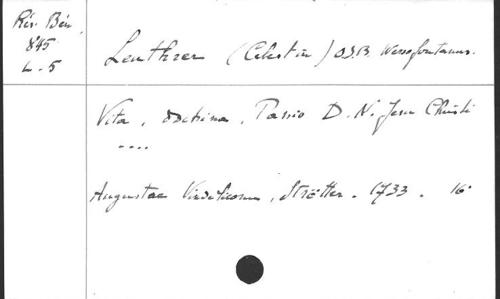 Rés. Bén.
845
L-5
Leuthner (Celestin) O.S.B. Wessofontanus.
Vita, doctrina, Passio D. N. Jesu Christi
....
Augustae Vindelicorum, Strötter. 1733. 16°